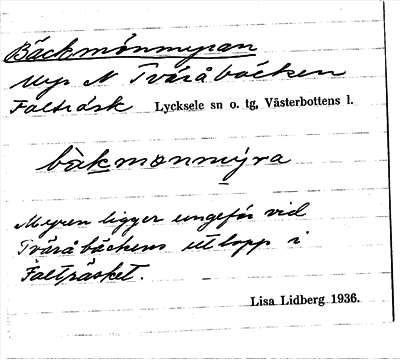 Bäckmónmyran
Myr N Tväråbäcken
Falträsk Lycksele sn o. tg, Västerbottens l.
bàkmonmýra
Myren ligger ungefär vid
Tväråbäckens utlopp i
Falträsket.
Lisa Lidberg 1936.